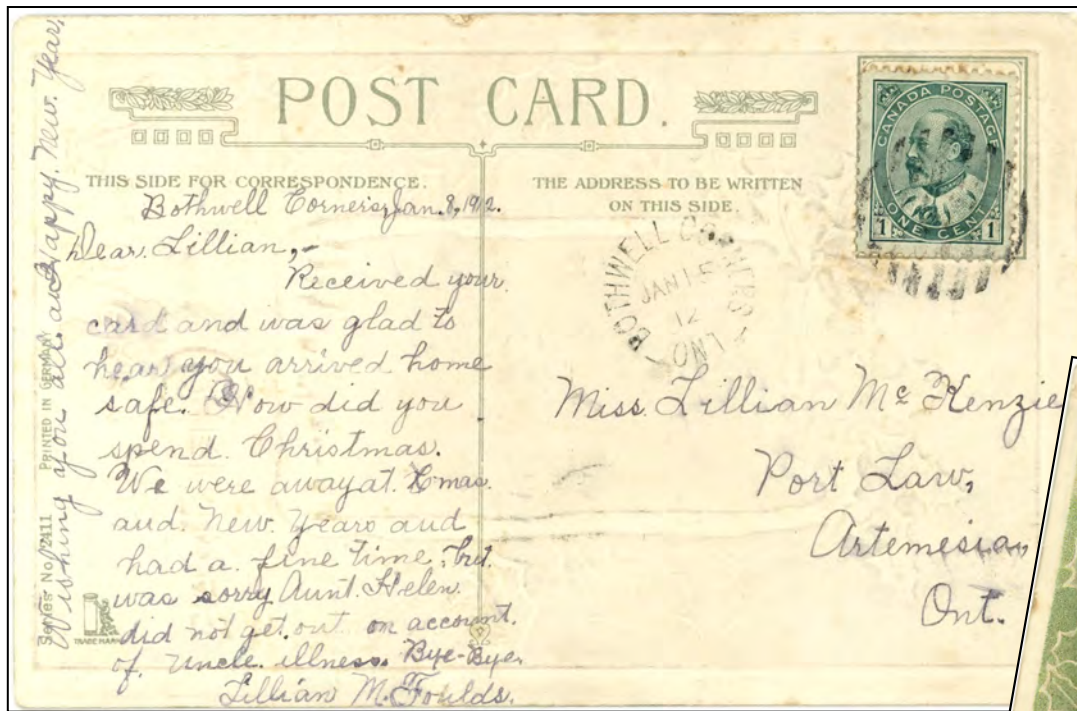 POST CARD.
THIS SIDE FOR CORRESPONDENCE.
Bothwell Corners, Jan. 8, 1912.
Dear Lillian,-
Received your
card and was glad to
hear you arrived home
safe. How did you
spend. Christmas.
We were away at. Xmas.
and. New. Years and
had a. fine time, but
was sorry Aunt. Helen.
did not get. out on account.
of. Uncle. illness. Bye-Bye.
Lillian M. Foulds.
Wishing you all a Happy. New. Year,
Series No. 2411
PRINTED IN GERMANY
TRADE MARK
THE ADDRESS TO BE WRITTEN
ON THIS SIDE.
CANADA POSTAGE
1 ONE CENT 1
BOTHWELL CORNERS
JAN 15
12
ONT
Miss. Lillian Mc Kenzie
Port Law,
Artemesia,
Ont.